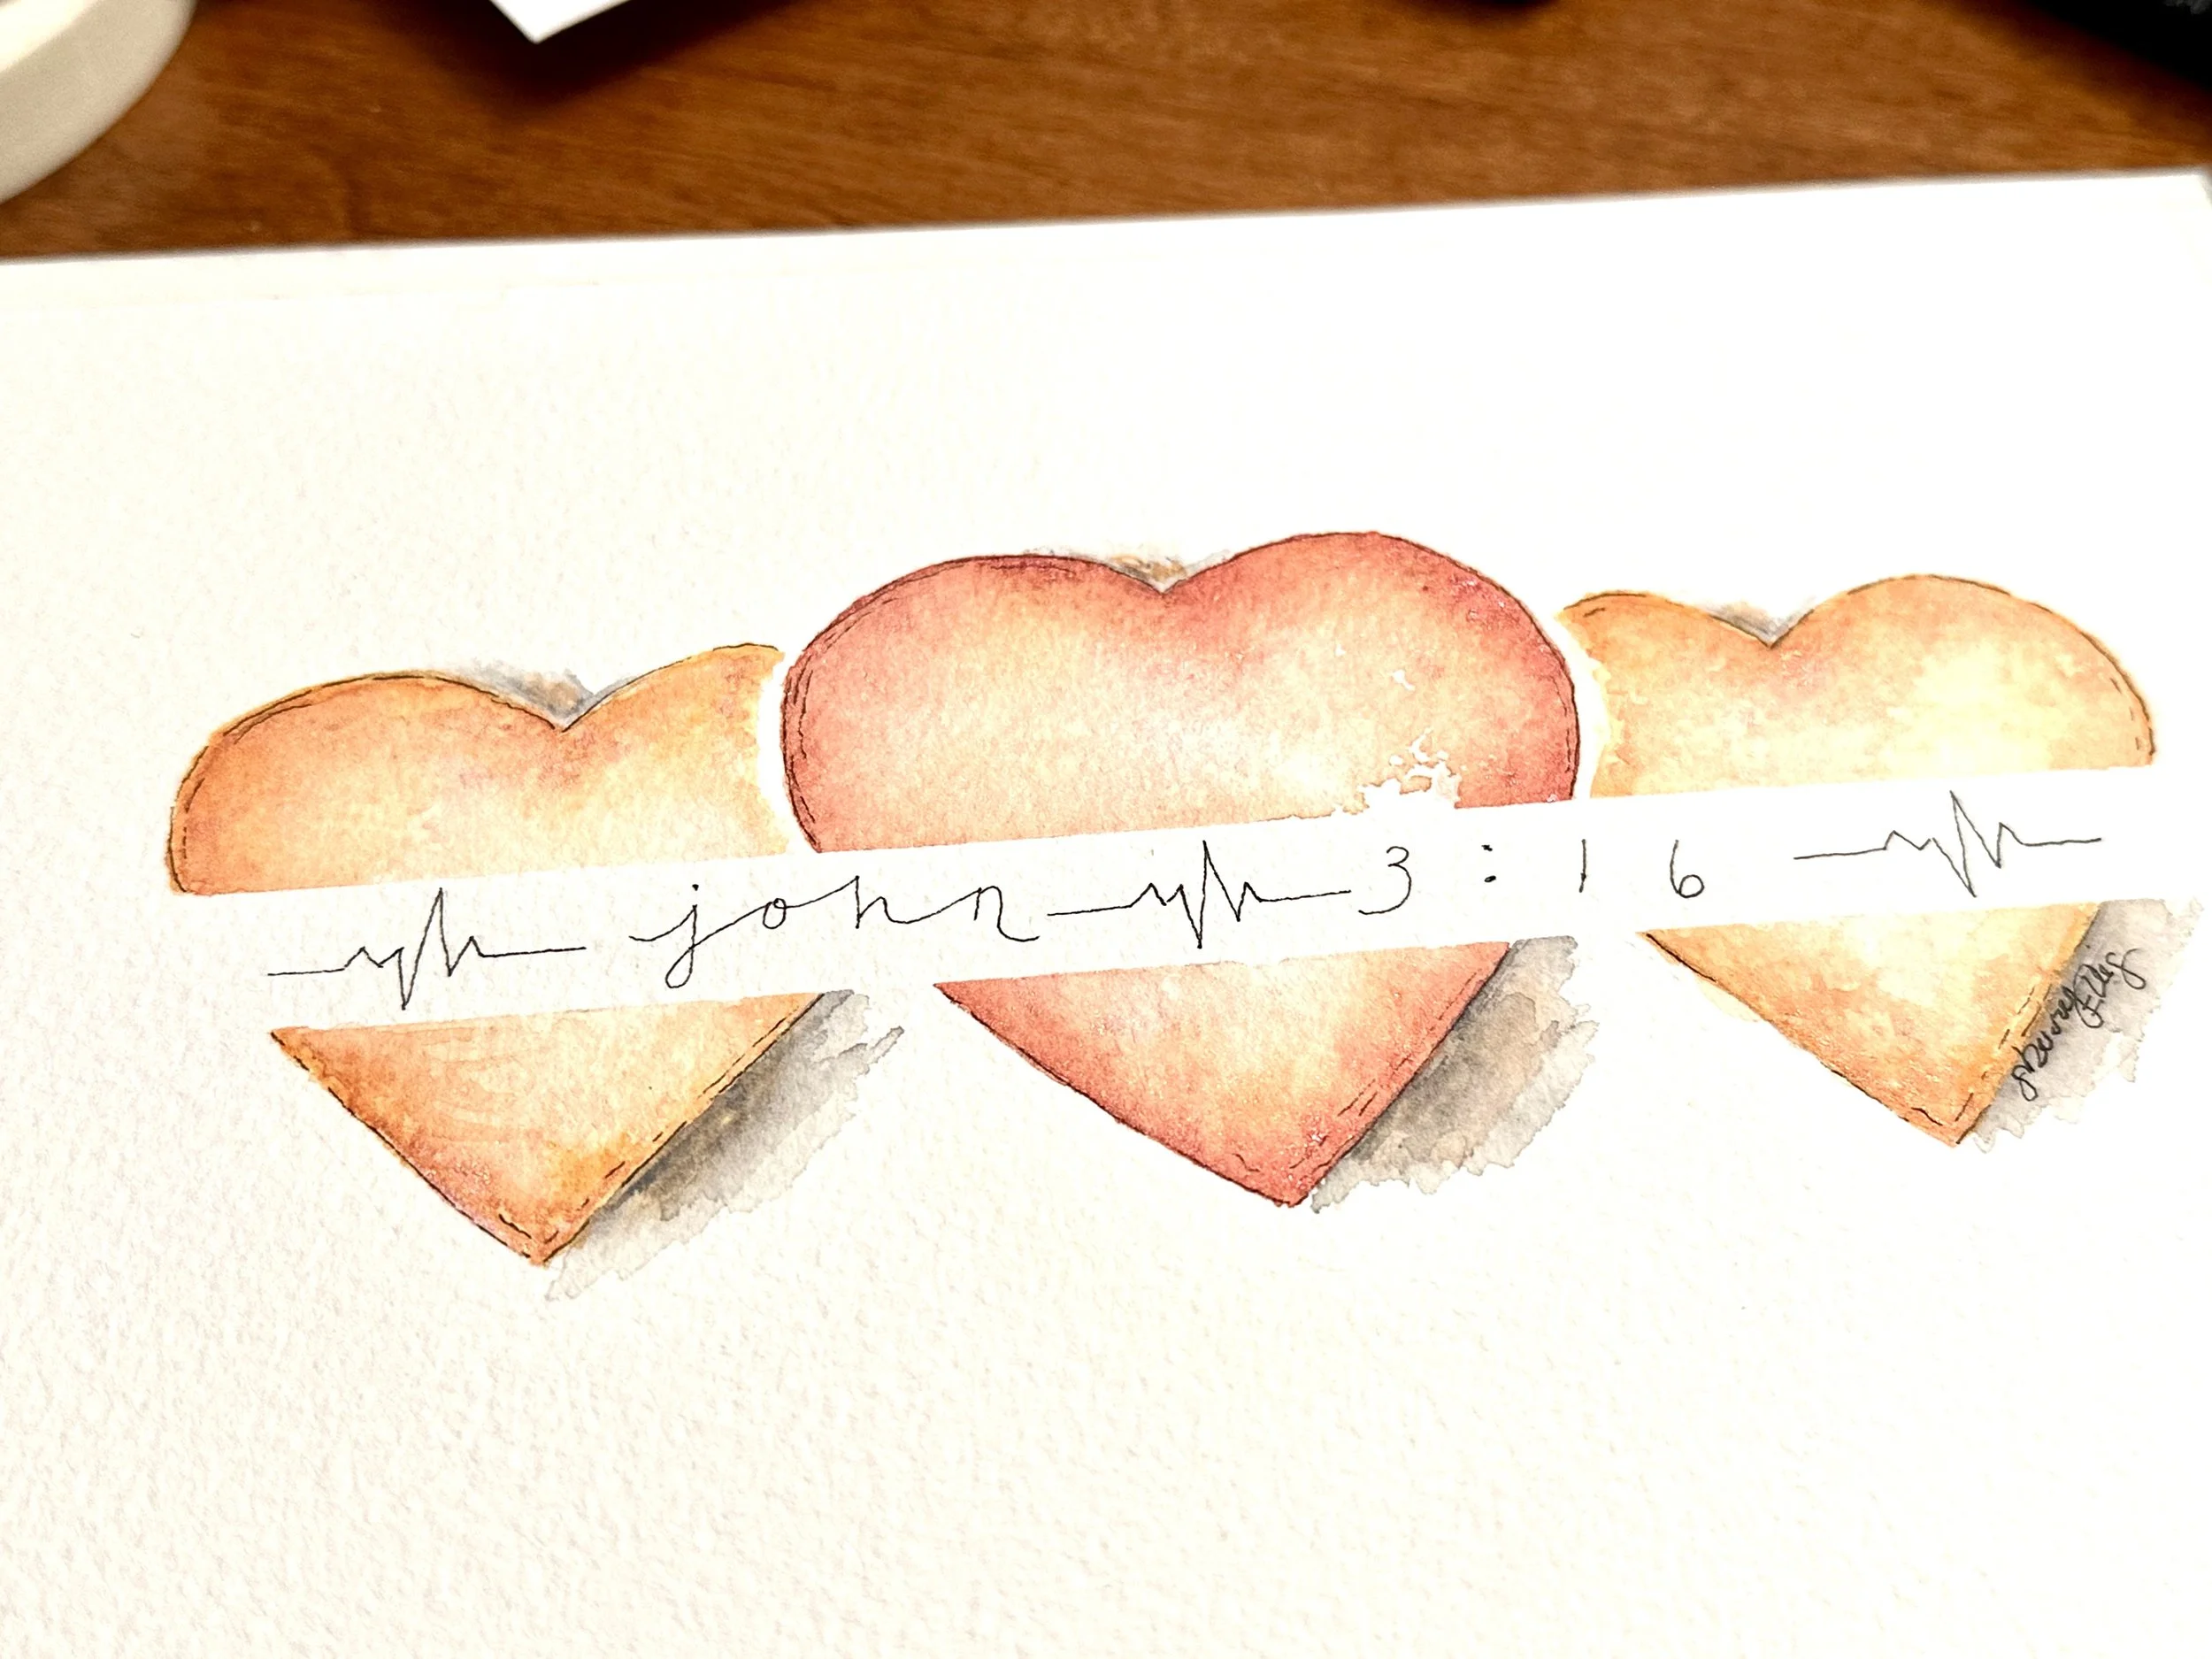 john 3:16